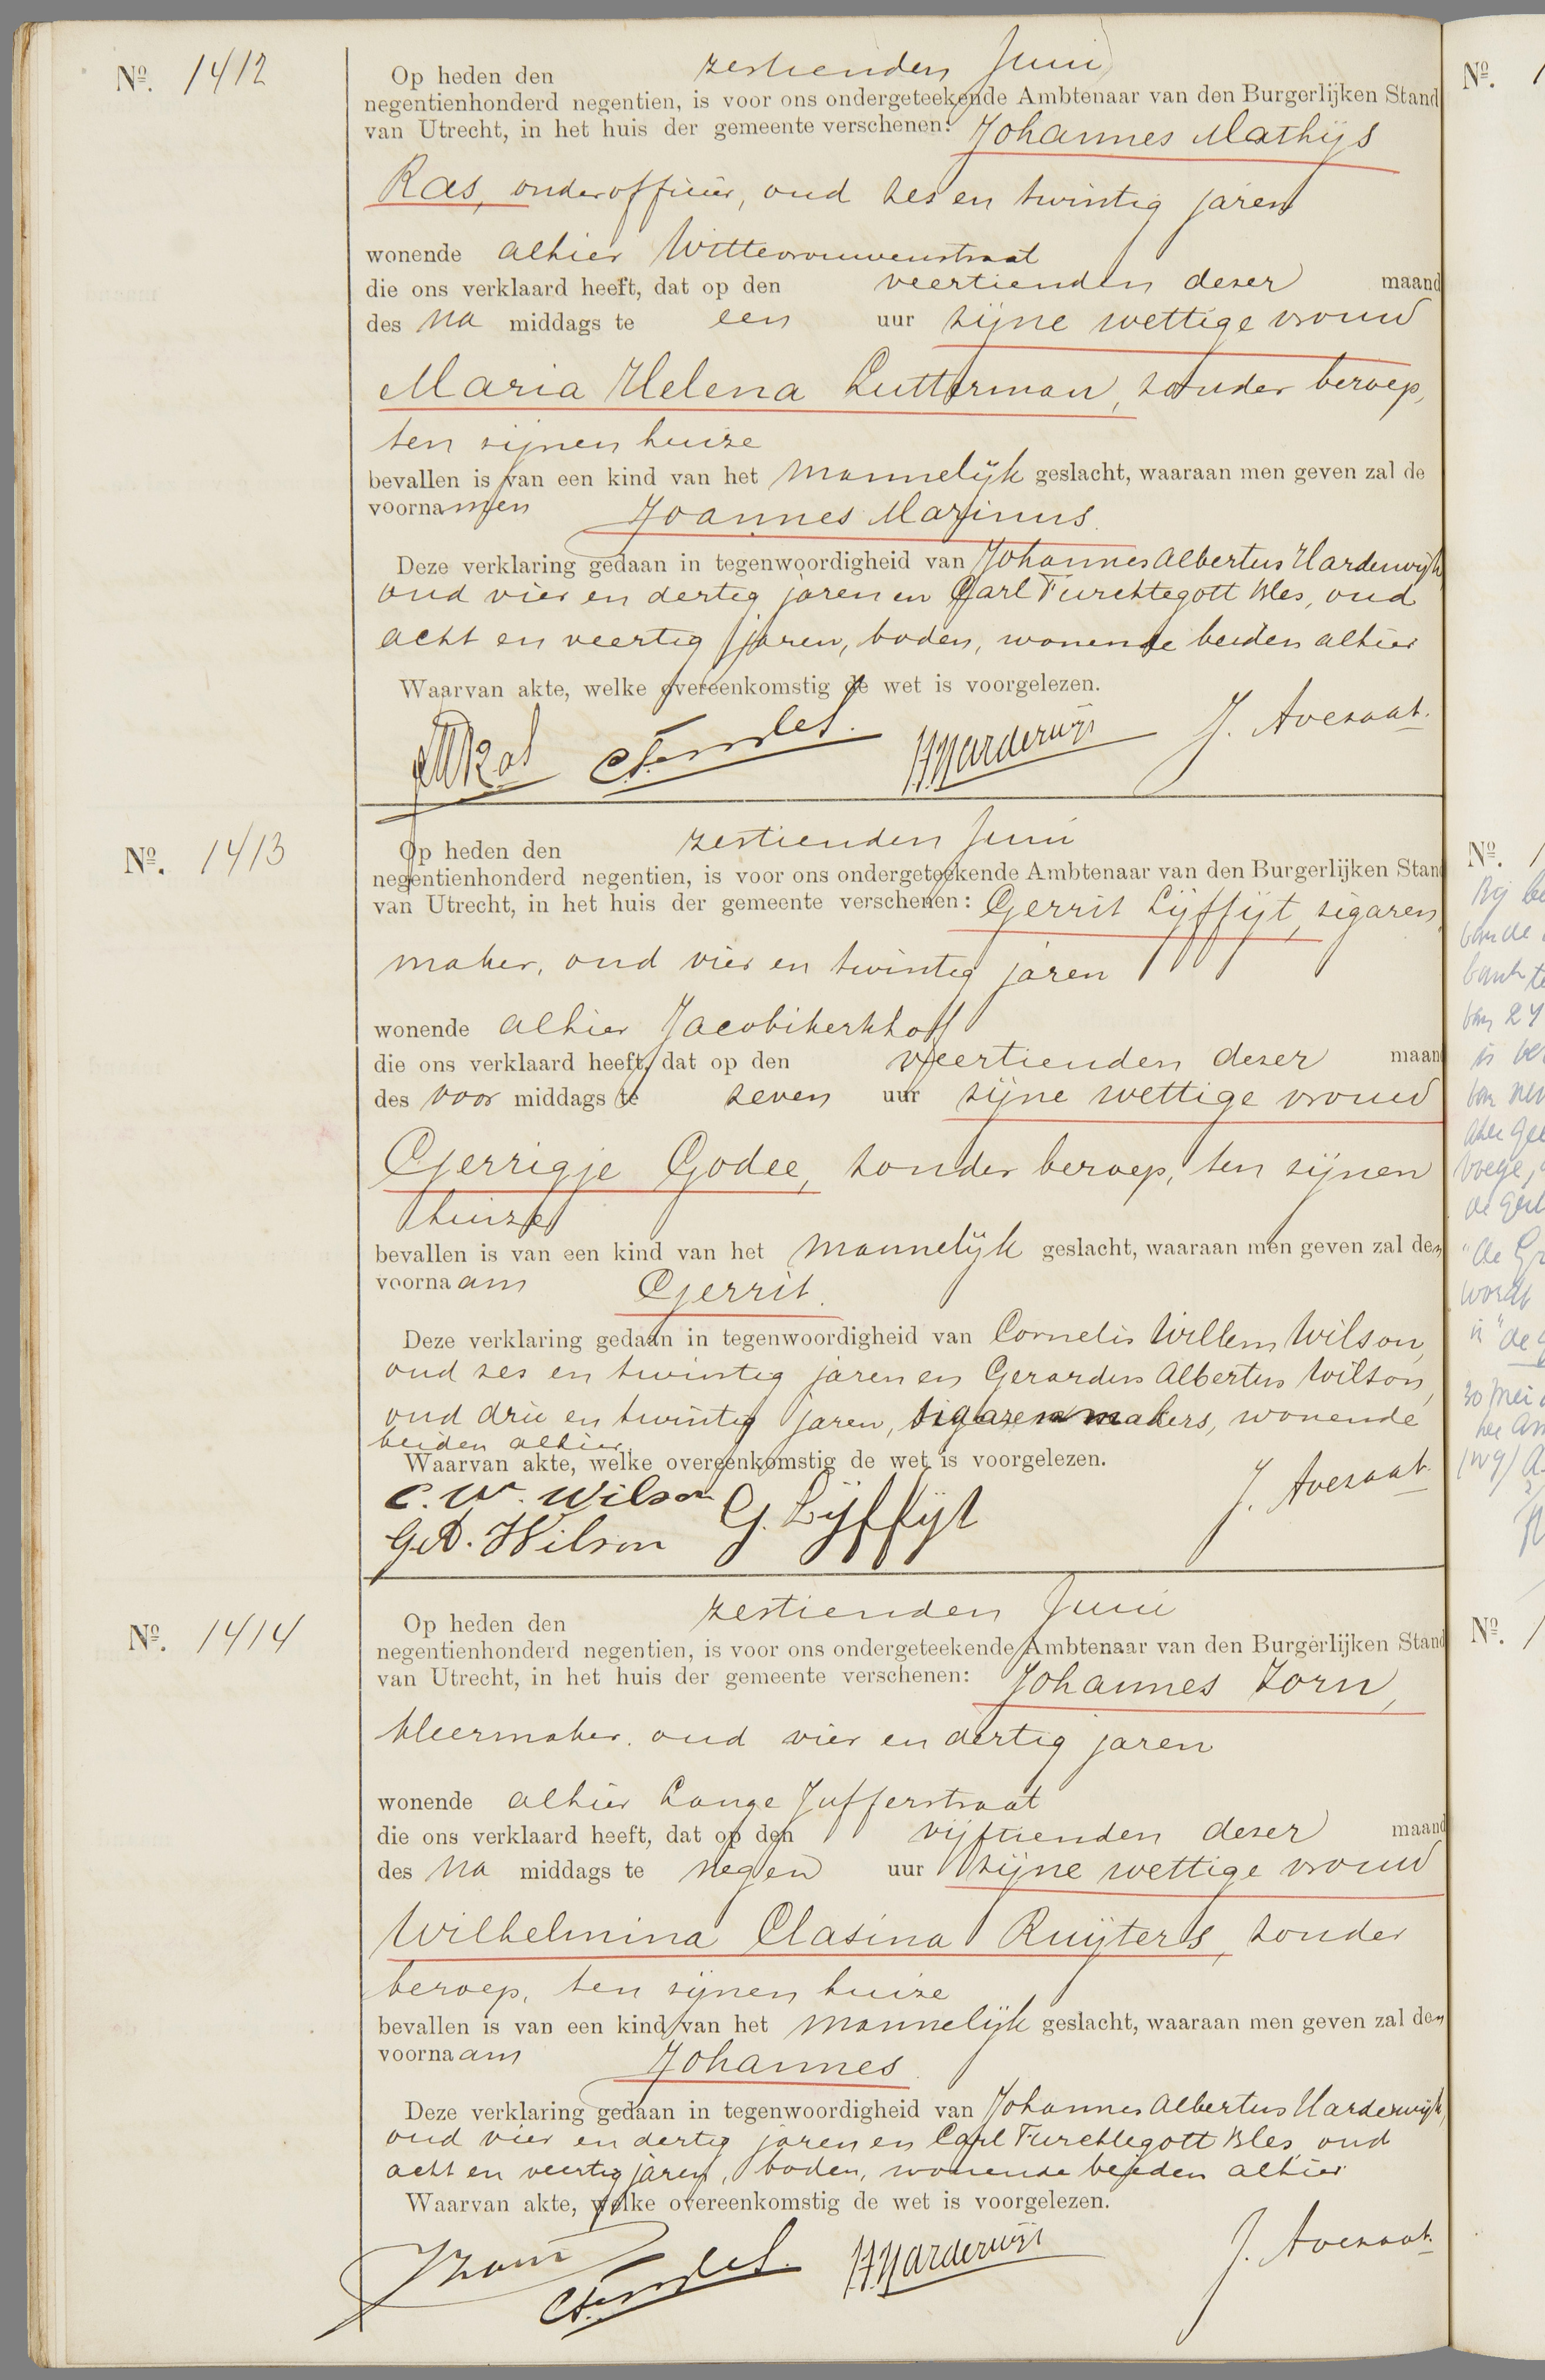 Nº. 1412
Op heden den zestienden Juni
negentienhonderd negentien, is voor ons ondergeteekende Ambtenaar van den Burgerlijken Stand
van Utrecht, in het huis der gemeente verschenen: Johannes Mathijs
Ras, onderofficier, oud zes en twintig jaren
wonende alhier Wittevrouwenstraat
die ons verklaard heeft, dat op den veertienden dezer maand
des na middags te een uur zijne wettige vrouw
Maria Helena Lutterman, zonder beroep,
ten zijnen huize
bevallen is van een kind van het mannelijk geslacht, waaraan men geven zal de
voornamen Joannes Marinus.
Deze verklaring gedaan in tegenwoordigheid van Johannes Albertus Harderwijk,
oud vier en dertig jaren en Carl Furchtegott Bles, oud
acht en veertig jaren, boden, wonende beiden alhier
Waarvan akte, welke overeenkomstig de wet is voorgelezen.
JMRas JAHarderwijk J. Avezaat.
Nº. 1413
Op heden den zestienden Juni
negentienhonderd negentien, is voor ons ondergeteekende Ambtenaar van den Burgerlijken Stand
van Utrecht, in het huis der gemeente verschenen: Gerrit Lijffijt, sigaren
maker, oud vier en twintig jaren
wonende alhier Jacobikerkhof
die ons verklaard heeft, dat op den veertienden dezer maand
des voor middags te zeven uur zijne wettige vrouw
Gerrigje Godee, zonder beroep, ten zijnen
huize
bevallen is van een kind van het mannelijk geslacht, waaraan men geven zal den
voornaam Gerrit.
Deze verklaring gedaan in tegenwoordigheid van Cornelis Willem Wilson,
oud zes en twintig jaren en Gerardus Albertus Wilson,
oud drie en twintig jaren, sigarenmakers, wonende
beiden alhier.
Waarvan akte, welke overeenkomstig de wet is voorgelezen.
C. W. Wilson G. Lijffijt J. Avezaat.
G.A. Wilson
Nº. 1414
Op heden den zestienden Juni
negentienhonderd negentien, is voor ons ondergeteekende Ambtenaar van den Burgerlijken Stand
van Utrecht, in het huis der gemeente verschenen: Johannes Zorn,
kleermaker, oud vier en dertig jaren
wonende alhier Lange Jufferstraat
die ons verklaard heeft, dat op den vijftienden dezer maand
des na middags te negen uur zijne wettige vrouw
Wilhelmina Clasina Ruijters, zonder
beroep, ten zijnen huize
bevallen is van een kind van het mannelijk geslacht, waaraan men geven zal den
voornaam Johannes.
Deze verklaring gedaan in tegenwoordigheid van Johannes Albertus Harderwijk,
oud vier en dertig jaren en Carl Furchtegott Bles, oud
acht en veertig jaren, boden, wonende beiden alhier
Waarvan akte, welke overeenkomstig de wet is voorgelezen.
JZorn JAHarderwijk J. Avezaat.